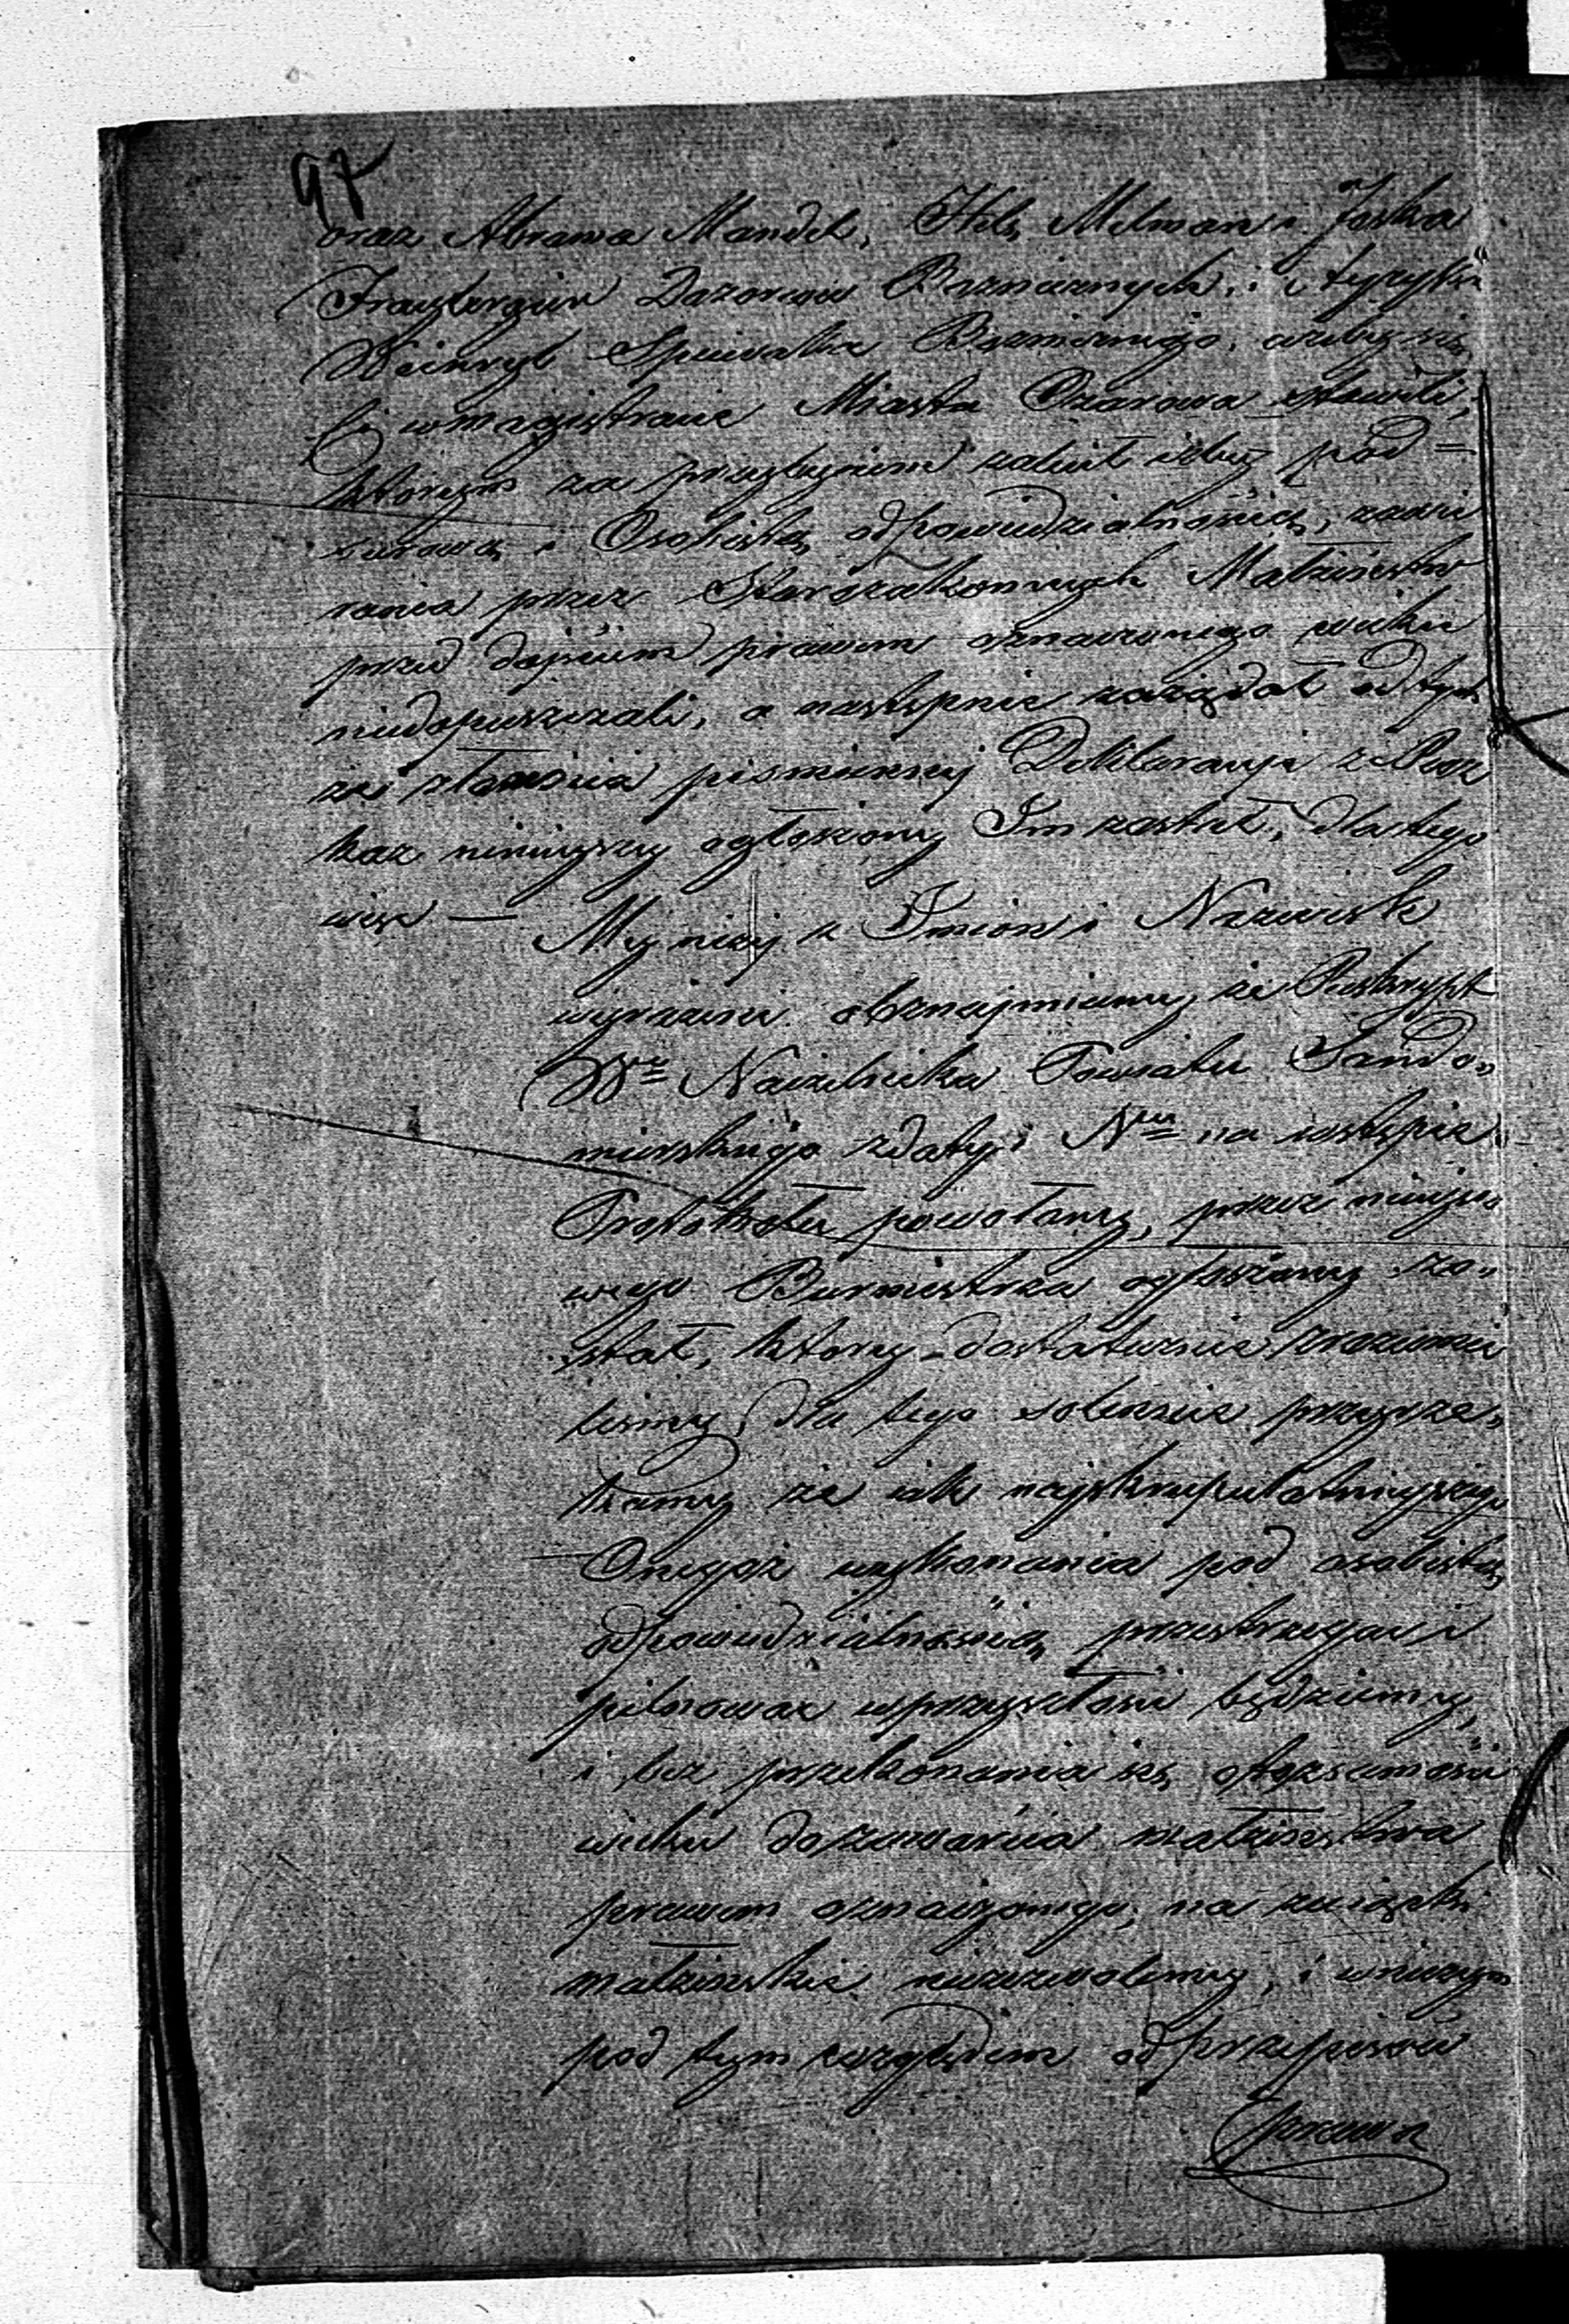 97
oraz Abrama Mandel, Hel Melman i Joska
Dozorców Boznicznych, i
Weinryb Spiewaka Boznicznego, ażeby się
w magistracie Miasta Ozarowa stawili,
którym za przybyciem zalecił ażeby pod
surową i Osobistą odpowiedzialnością, zawie
rania przez Starozakonnych Małżeństw
przed dojściem prawem oznaczonego wieku
niedopuszczali, a następnie zażądał od tych
że złożenia pismiennej Deklaracyi z Roz
kaz niniejszy ogłoszony Im został, dla tego
więc — My niżej z Imion i Nazwisk
wyrażeni obznajmieni, że Reskrypt
Wgo Naczelnika Powiatu Sando„
mierskiego z daty i Nru na wstępie
Protokółu powołany, przez miejsco
wego Burmistrza ogłoszony zo„
stał, który dostatecznie zrozumie
lismy, dla tego solennie przyrze„
kamy że jak najskrupulatniejszego
Onegoż wykonania pod osobistą
odpowiedzialnością przestrzegać i
pilnować w przyszłości będziemy,
i bez przekonania się
wieku do zawarcia małżeństwa
prawem oznaczonego, na związki
małżeńskie niezezwolemy, i wniczym
pod tym względem od przepisów
prawa